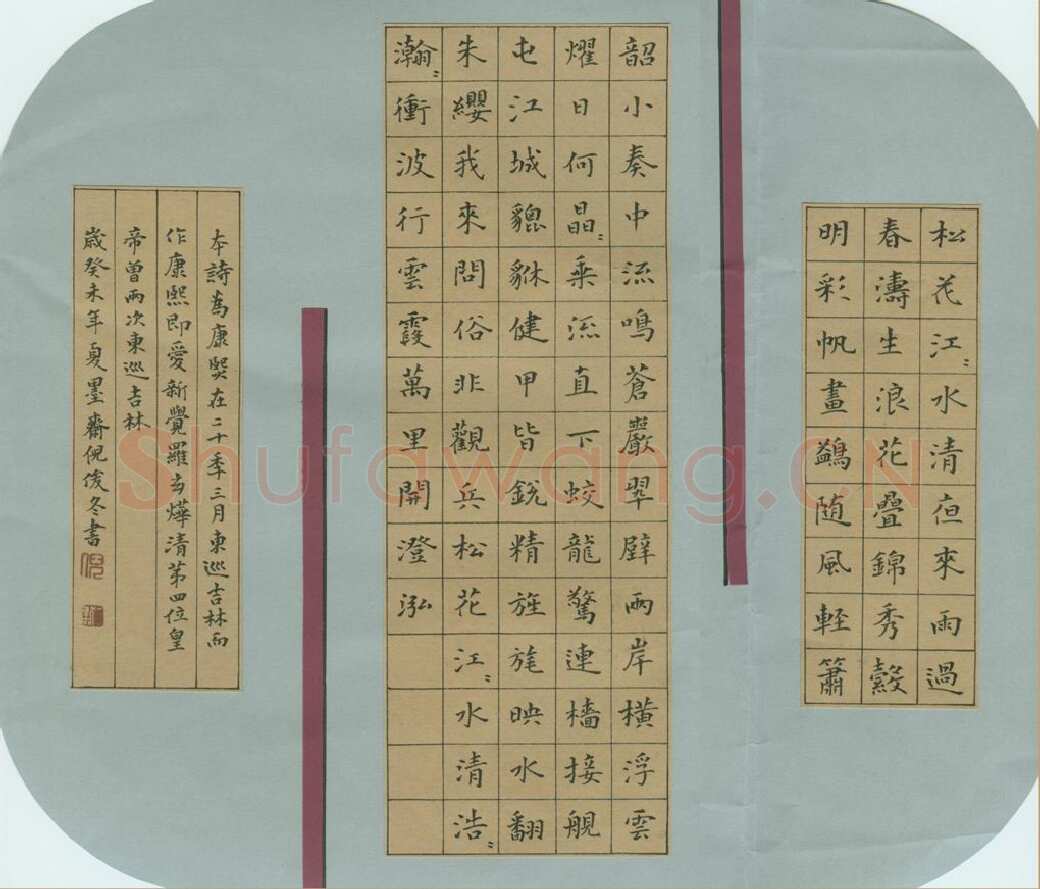 松花江〻水清夜來雨過
春濤生浪花疊錦秀縠
明彩帆畫鷁随風輕簫
韶小奏中流鳴蒼巖翠壁兩岸橫浮雲
耀日何晶〻乘流直下蛟龍驚連檣接艦
屯江城貔貅健甲皆銳精旌旄映水翻
朱纓我來問俗非觀兵松花江〻水清浩〻
瀚〻衝波行雲霞萬里開澄泓
本詩為康熙在二十年三月東巡吉林而
作康熙即愛新覺羅玄燁清第四位皇
帝曾兩次東巡吉林
歲癸未年夏墨齋倪俊冬書
Shufawang.CN